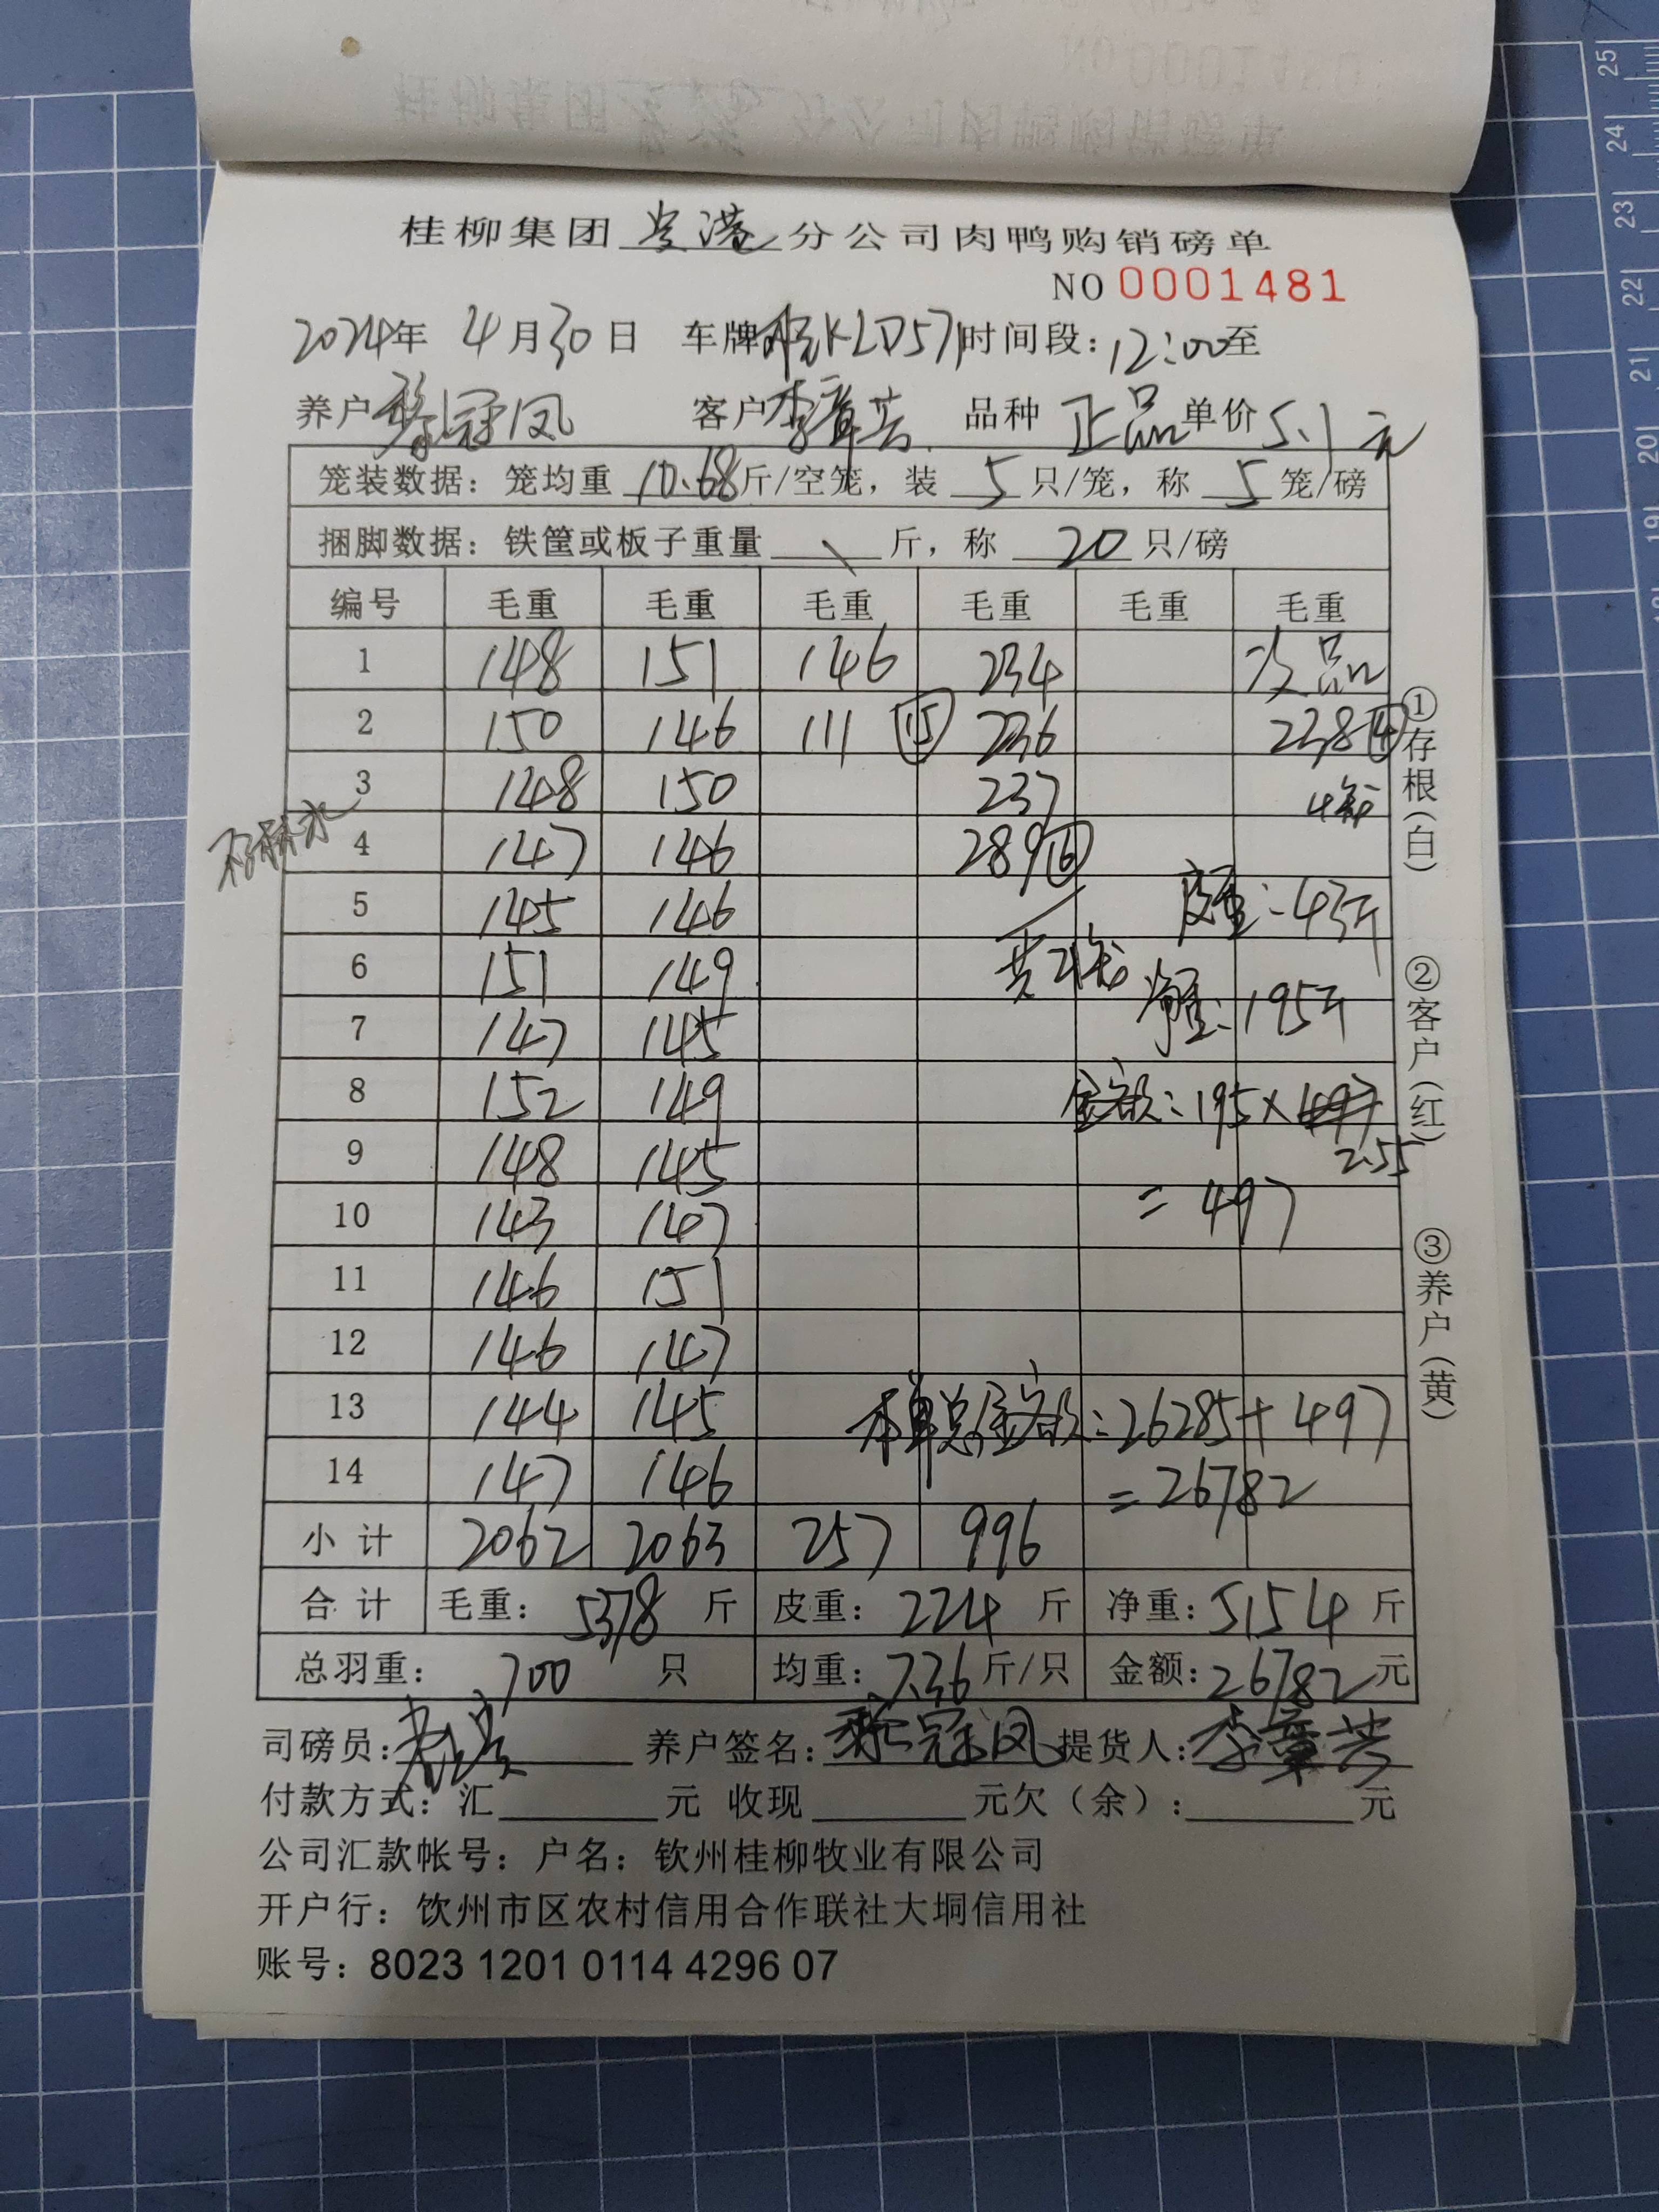 桂柳集团 贵港 分公司肉鸭购销磅单
NO 0001481
2024年 4月30日 车牌桂KLD571时间段:12:00至
养户 黎冠凤 客户 李章芸 品种 正品 单价 5.1元
笼装数据:笼均重 10.68斤/空笼,装 5 只/笼,称 5 笼/磅
捆脚数据:铁筐或板子重量 \ 斤,称 20 只/磅
编号 毛重 毛重 毛重 毛重 毛重 毛重
1 148 151 146 234 次品
2 150 146 111 ⑮ 236 238
3 148 150 237
4 147 146 289⑥
5 145 146 皮重:43斤
6 151 149
7 147 145 净重:195斤
8 152 149 金额:195×
9 148 145 2.55
10 143 147 =497
11 146 151
12 146 147
13 144 145 本单总金额:26285+497
14 147 146 =26782
小计 2062 2063 257 996
合计 毛重:5378斤 皮重:224斤 净重:5154斤
总羽重:700只 均重:7.36斤/只 金额:26782元
司磅员: 养户签名:黎冠凤 提货人:李章芸
付款方式:汇 元 收现 元欠(余): 元
公司汇款帐号:户名:钦州桂柳牧业有限公司
开户行:钦州市区农村信用合作联社大垌信用社
账号:8023 1201 0114 4296 07
①存根(白)
②客户(红)
③养户(黄)